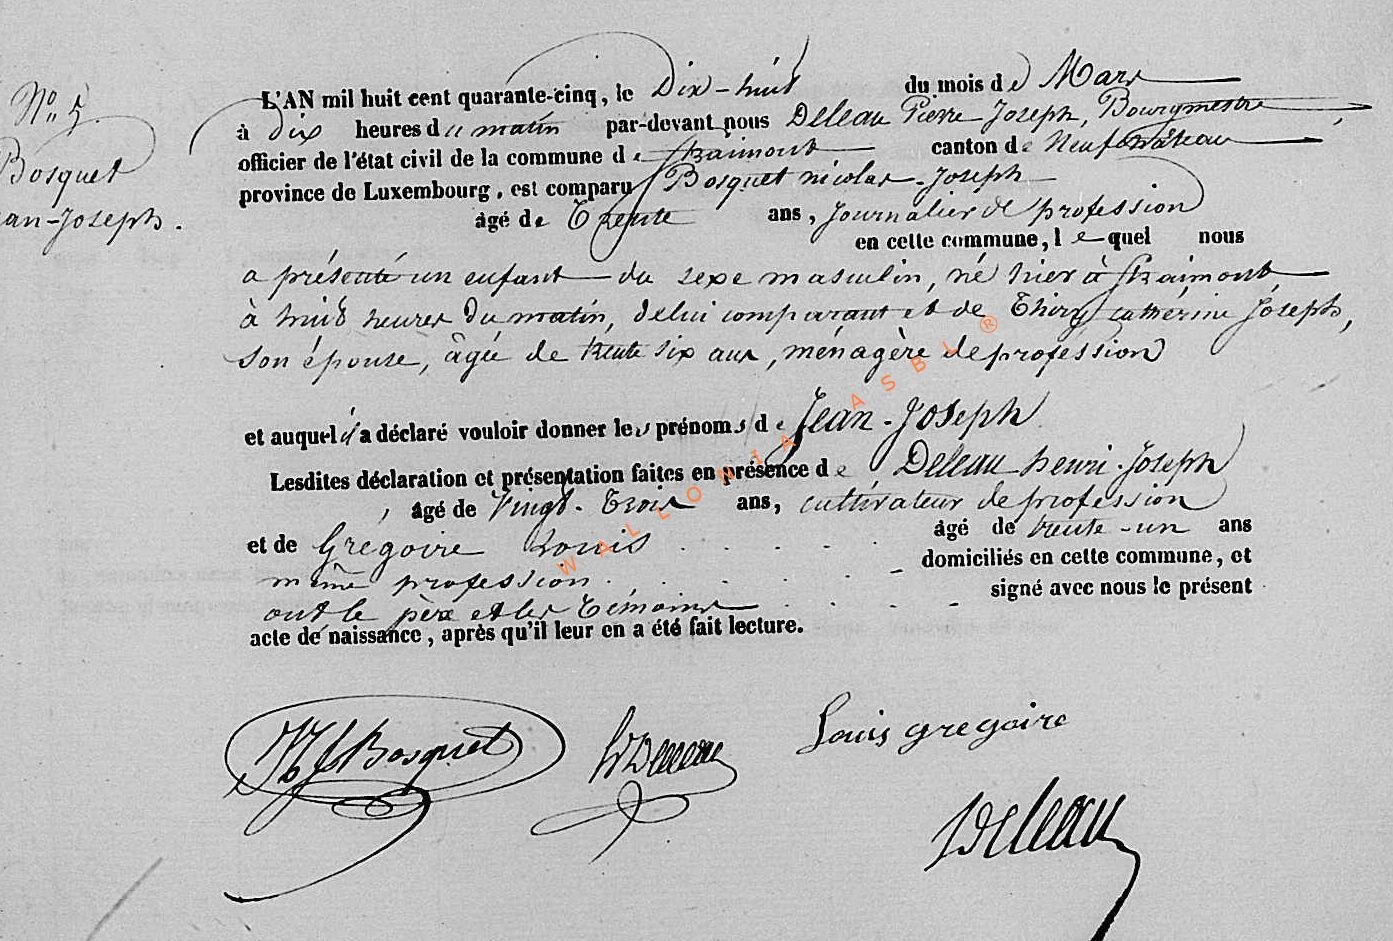 N° 5.
Bosquet
an-Joseph.
L'AN mil huit cent quarante-cinq, le Dix-huit du mois de Mars
à dix heures du matin par-devant nous Deleau Pierre Joseph, Bourgmestre
officier de l'état civil de la commune de Straimont canton de Neufchâteau
province de Luxembourg, est comparu Bosquet nicolas-Joseph
âgé de Trente ans, Journalier de profession
en cette commune, lequel nous
a présenté un enfant du sexe masculin, né hier à Straimont
à huit heures du matin, de lui comparant et de Thiry catherine Joseph,
son épouse, âgée de trente six ans, ménagère de profession
et auquel il a déclaré vouloir donner les prénoms de Jean-Joseph
Lesdites déclaration et présentation faites en présence de Deleau henri-Joseph
, âgé de Vingt-Trois ans, cultivateur de profession
et de Grégoire Louis âgé de trente-un ans
même profession domiciliés en cette commune, et
ont le père et les Témoins signé avec nous le présent
acte de naissance, après qu'il leur en a été fait lecture.
WALLONIA ASBL ®
NJ Bosquet
hDeleau
Louis gregoire
Deleau